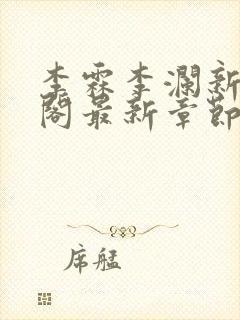 李霖李澜新
阁最新章节
席艋